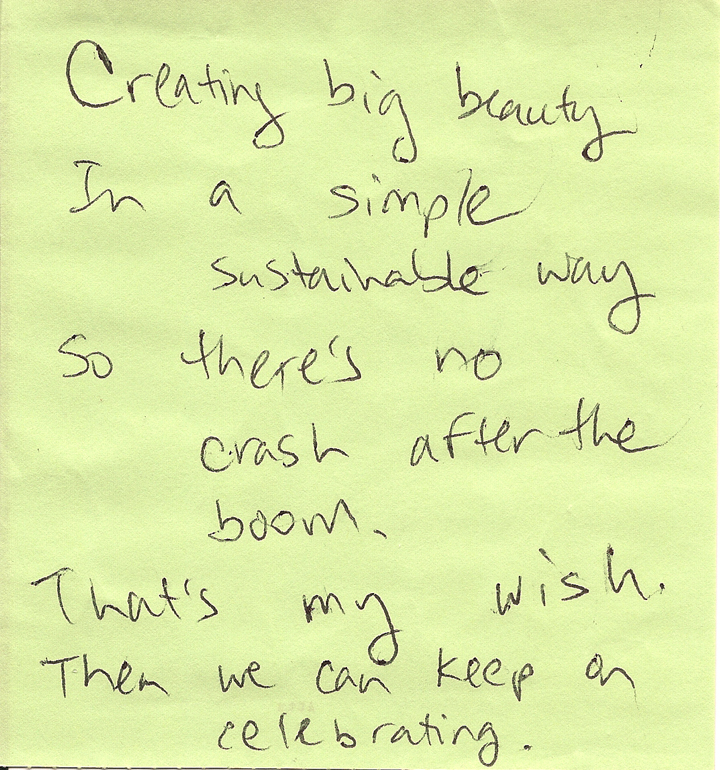 Creating big beauty
In a simple
sustainable way
So there's no
crash after the
boom.
That's my wish.
Then we can keep on
celebrating.